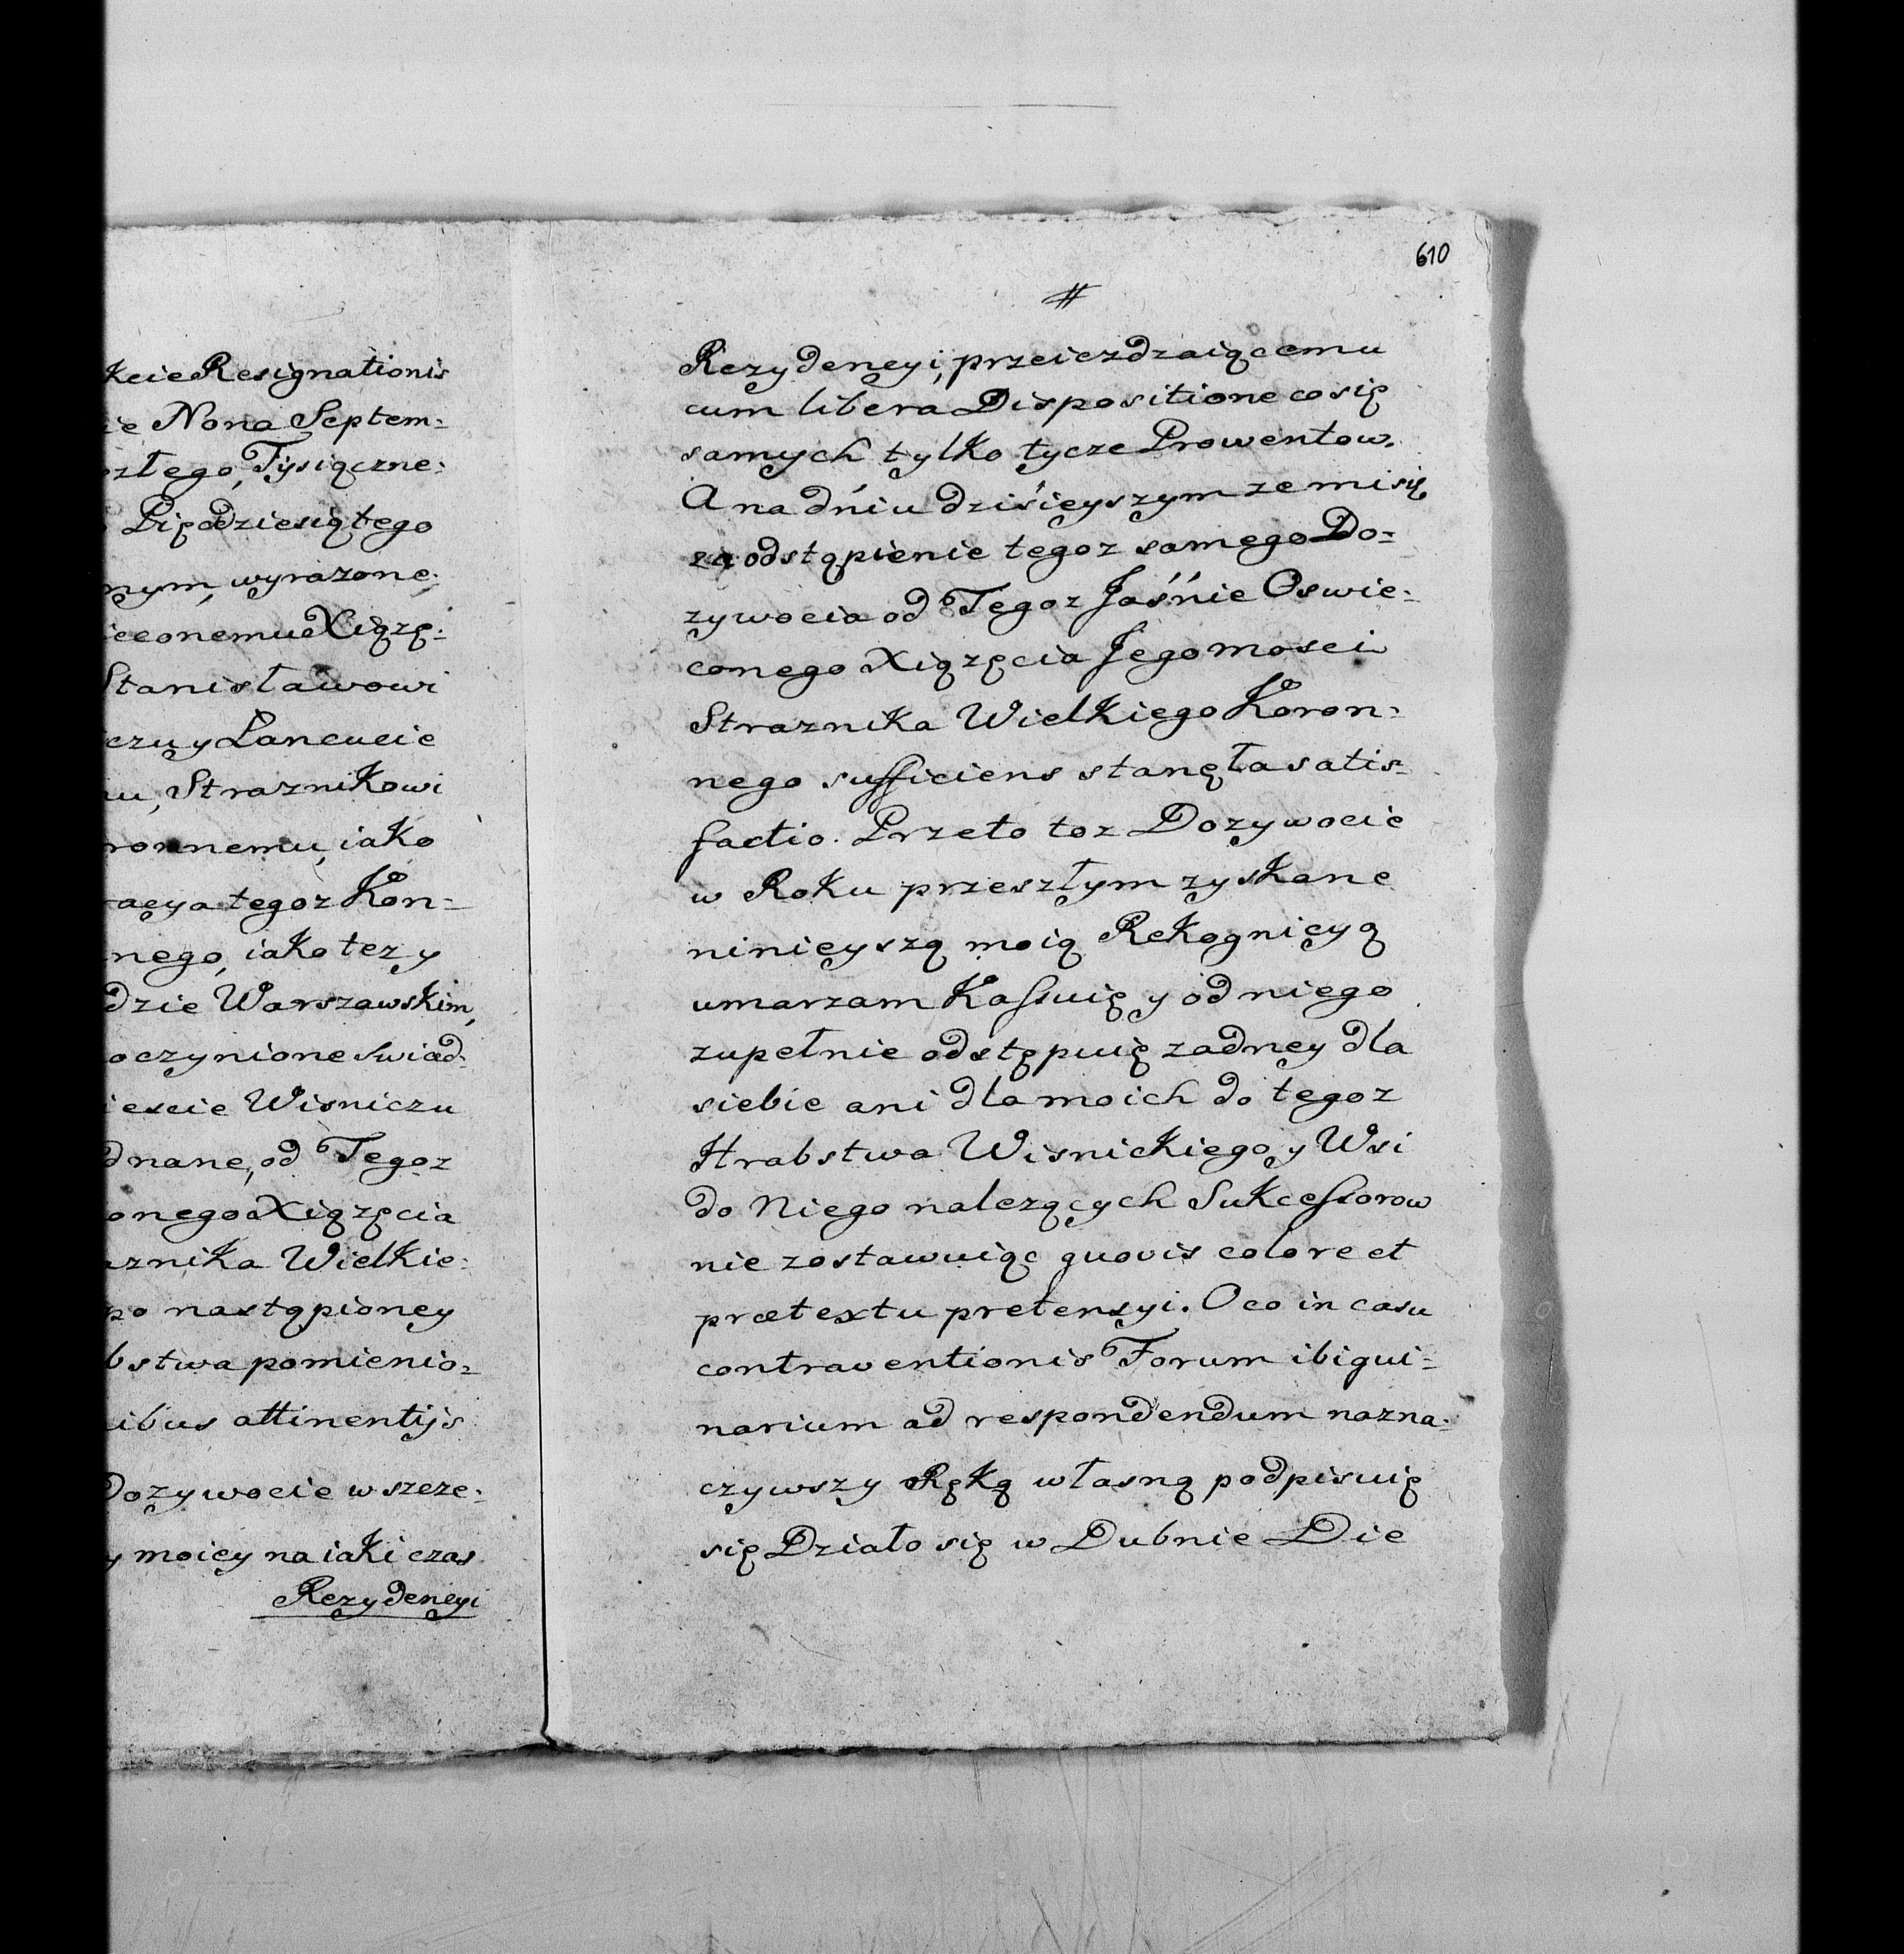 kcie Resignationis
ie Nona Septem=
szłego, Tysiączne=
Pięcdziesiątego
nym, wyrazone=
ieconemu Xiązę=
Stanisławowi
iczu y Lancucie
u, Straznikowi
ronnemu, iako
racya tegoz Kon=
nego, iako tez y
dzie Warszawskim,
oczynione swiad=
iescie Wisniczu
dnane, od Tegoz
onego Xiązęcia
aznika Wielkie=
po nastąpioney
bstwa pomienio=
ibus attinentijs
Dozywocie w szcze=
y moiey na iaki czas
Rezydencyi
610
#
Rezydencyi, przeiezdzaiącemu
cum libera Dispositione co się
samych tylko tycze Prowentow.
A na dńiu dziśieyszym ze mi się
za odstąpienie tegoz samego Do=
zywocia od Tegoz Jaśńie Oswie=
conego Xiązęcia Jegomosci
Straznika Wielkiego Koron=
nego sufficiens stanęła satis=
factio. Przeto toz Dozywocie
w Roku przeszłym zyskane
ninieyszą moią Rekognicyą
umarzam Kassuię y od niego
zupełnie odstępuię zadney dla
siebie ani dla moich do tegoz
Hrabstwa Wisnickiego y Wsi
do Niego nalezących Sukcessorow
nie zostawuiąc quovis colore et
prætextu pretensyi. O co in casu
contraventionis Forum ibiqui=
narium ad respondendum nazna=
czywszy Ręką własną podpisuię
się Działo się w Dubnie Die